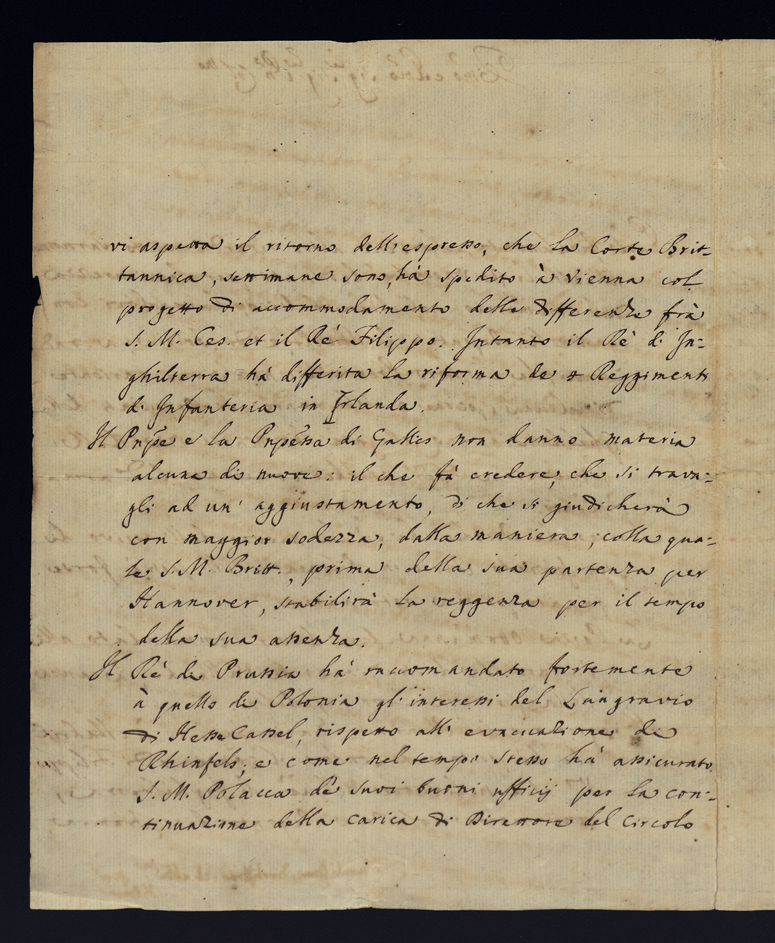 vi aspetta il ritorno dell'espresso, che la Corte Brit-
tannica, settimane sono, hà spedito à Vienna col
progetto di accommodamento delle differenze frà
S. M. Ces. et il Rè Filippo. Intanto il Rè d'In-
ghilterra hà differita la riforma de 4 Reggimenti
di Infanteria in Irlanda.
Il Pnṕe e la Pnṕessa di Galles non danno materia
alcuna di nuovo: il che fà credere, che si trava-
gli ad un' aggiustamento, di che si giudicherà
con maggior sodezza, dalla maniera, colla qua-
le S. M. Britt., prima della sua partenza per
Hannover, stabilirà la reggenza per il tempo
della sua assenza.
Il Rè di Prussia hà raccomandato fortemente
à quello di Polonia gl'interessi del Langravio
di Hesse Cassel, rispetto all' evacuazione di
Rhinfels; e come nel tempo stesso hà assicurato
S. M. Polacca de suoi buoni ufficij per la con-
tinuazione della carica di Direttore del Circolo